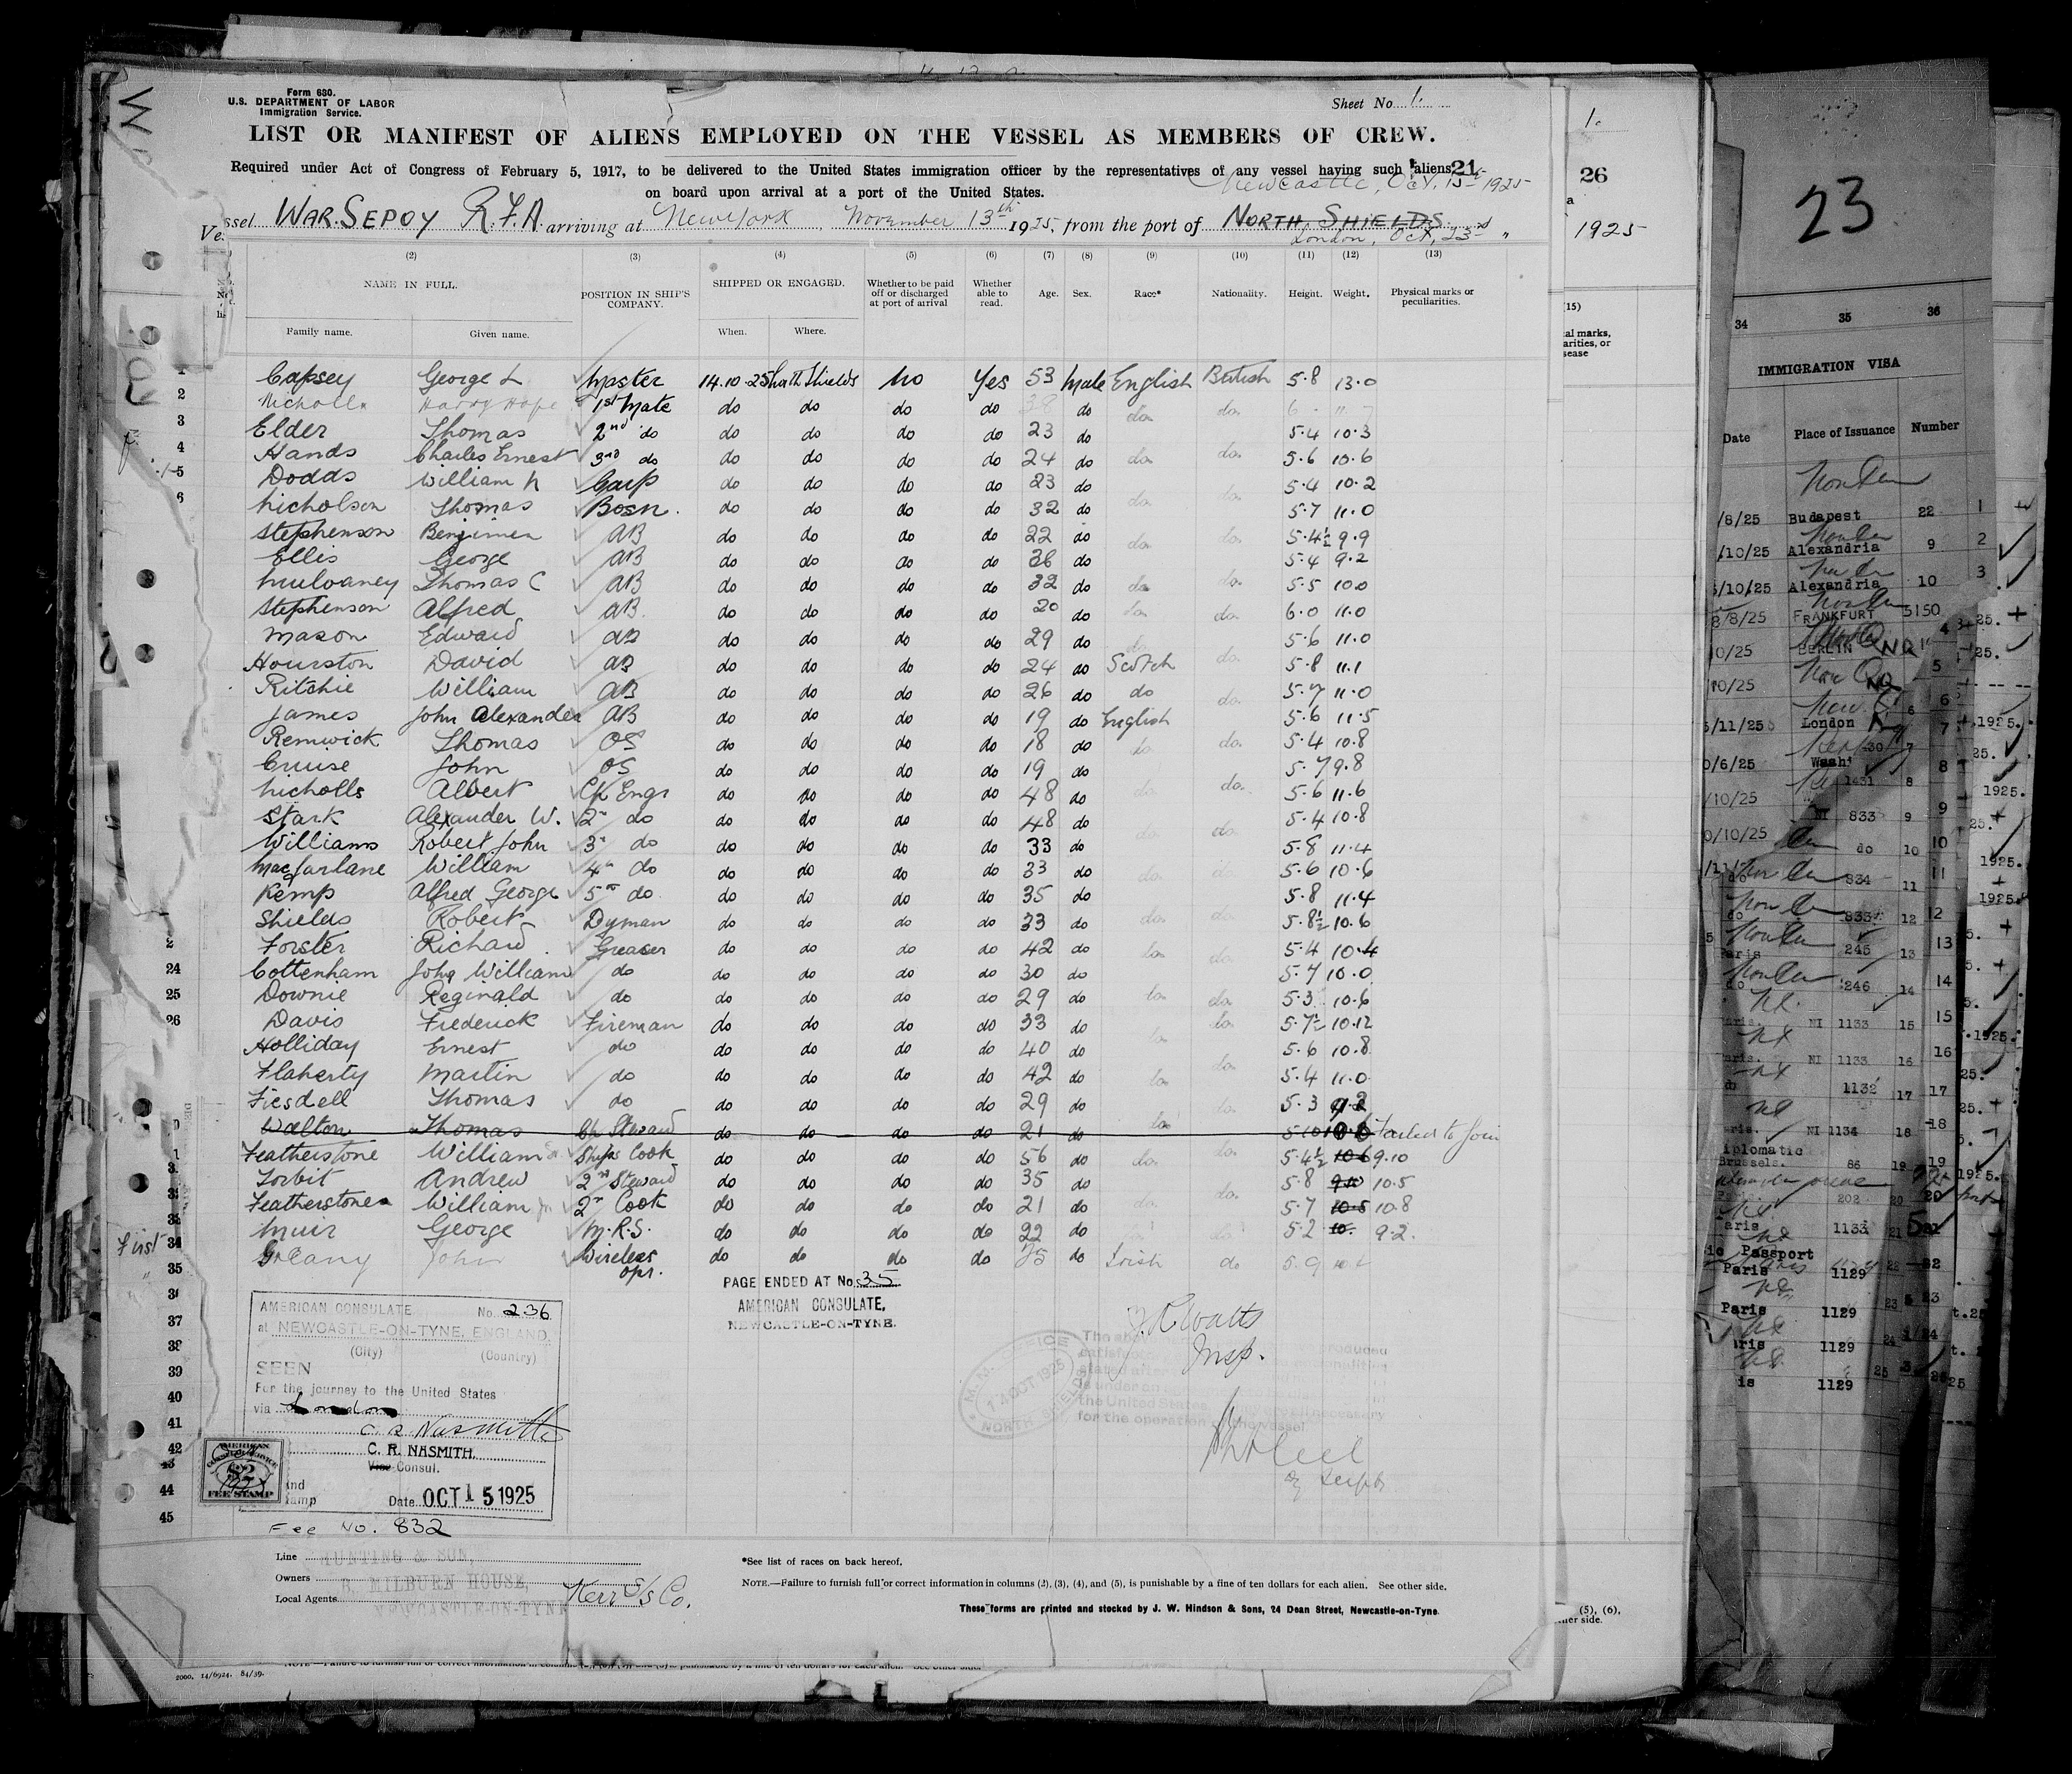 Form 680.
U.S. DEPARTMENT OF LABOR
Immigration Service.
Sheet No. 1.
LIST OR MANIFEST OF ALIENS EMPLOYED ON THE VESSEL AS MEMBERS OF CREW.
Required under Act of Congress of February 5, 1917, to be delivered to the United States immigration officer by the representatives of any vessel having such aliens 21
on board upon arrival at a port of the United States.
Newcastle, Oct. 15th 1925
Vessel WAR SEPOY R.F.A. arriving at New York, November 13th 1925, from the port of NORTH SHIELDS
London, Oct. 23rd "
(2) (3) (4) (5) (6) (7) (8) (9) (10) (11) (12) (13)
NAME IN FULL. POSITION IN SHIP'S COMPANY. SHIPPED OR ENGAGED. Whether to be paid off or discharged at port of arrival Whether able to read. Age. Sex. Race* Nationality. Height. Weight. Physical marks or peculiarities.
Family name. Given name. When. Where.
1 Capsey George L Master 14.10.25 North Shields No Yes 53 Male English British 5.8 13.0
2 Nicholls Harry Hope 1st Mate do do do do 38 do do do 6
3 Elder Thomas 2nd do do do do do 23 do 5.4 10.3
4 Hands Charles Ernest 3rd do do do do do 24 do do do 5.6 10.6
5 Dodds William N Carp do do do do 23 do 5.4 10.2
6 Nicholson Thomas Bosn. do do do do 32 do do do 5.7 11.0
Stephenson Benjimen AB do do do do 22 do do do 5.4½ 9.9
Ellis George AB do do do do 36 do 5.4 9.2
Mulvaney Thomas C AB do do do do 32 do do do 5.5 10.0
Stephenson Alfred AB do do do do 20 do do do 6.0 11.0
Mason Edward AB do do do do 29 do 5.6 11.0
Hourston David AB do do do do 24 do Scotch do 5.8 11.1
Ritchie William AB do do do do 26 do do do 5.7 11.0
James John Alexander AB do do do do 19 do English 5.6 11.5
Renwick Thomas OS do do do do 18 do do do 5.4 10.8
Cruise John OS do do do do 19 do 5.7 9.8
Nicholls Albert Ch Engr do do do do 48 do do do 5.6 11.6
Stark Alexander W. 2nd do do do do do 48 do 5.4 10.8
Williams Robert John 3rd do do do do do 33 do do do 5.8 11.4
Macfarlane William 4th do do do do do 33 do do do 5.6 10.6
Kemp Alfred George 5th do do do do do 35 do 5.8 11.4
Shields Robert Dyman do do do do 33 do do do 5.8½ 10.6
Forster Richard Greaser do do do do 42 do do do 5.4 10.4
24 Cottenham John William do do do do do 30 do 5.7 10.0
25 Downie Reginald do do do do do 29 do do do 5.3 10.6
26 Davis Frederick Fireman do do do do 33 do do do 5.7½ 10.12
Holliday Ernest do do do do do 40 do 5.6 10.8
Flaherty Martin do do do do do 42 do do do 5.4 11.0
Tiesdell Thomas do do do do do 29 do do 5.3 9.2
Walton Thomas Ch Steward do do do do 21 do do 5.10 10.6 Failed to Join
Featherstone William Sr Ships Cook do do do do 56 do do do 5.4½ 10.6 9.10
Torbit Andrew 2nd Steward do do do do 35 do do 5.8 9.10 10.5
Featherstone William Jr 2nd Cook do do do do 21 do do 5.7 10.5 10.8
First 34 Muir George M.R.S. do do do do 22 do 5.2 10. 9.2.
" 35 John Wireless Opr. do do do do 25 do Irish do 5.9
36
37
38
39
40
41
42
43
44
45
PAGE ENDED AT No. 35
AMERICAN CONSULATE,
NEWCASTLE-ON-TYNE.
AMERICAN CONSULATE No. 236
at NEWCASTLE-ON-TYNE, ENGLAND.
(City) (Country)
SEEN
For the journey to the United States
via London
C R Nasmith
C. R. NASMITH.
Vice Consul.
Date OCT 15 1925
AMERICAN
$2
FEE STAMP
Fee No. 832
J. R. Watts
Insp.
M.M. OFFICE
14 OCT 1925
NORTH SHIELDS
the United States
for the operation
Line HUNTING & SON,
Owners 8, MILBURN HOUSE,
Local Agents NEWCASTLE-ON-TYNE
Kerr S/s Co.
*See list of races on back hereof.
NOTE.—Failure to furnish full or correct information in columns (2), (3), (4), and (5), is punishable by a fine of ten dollars for each alien. See other side.
These forms are printed and stocked by J. W. Hindson & Sons, 24 Dean Street, Newcastle-on-Tyne.
2000. 14/6924. 84/39.
1.
26
1925
(15)
(5), (6),
23
34 35 36
IMMIGRATION VISA
Date Place of Issuance Number
/8/25 Budapest 22 1
/10/25 Alexandria 9 2
/10/25 Alexandria 10 3
8/8/25 FRANKFURT 5150 4
0/25 BERLIN
/10/25
/11/25 London
0/6/25 Wash
/10/25 1431 8
NI 833 9
0/10/25 do 10
do 834 11
do 833 12
Paris 245 13
do 246 14
Paris. NI 1133 15
Paris. NI 1133 16
do 1132 17
Paris. NI 1134 18
Diplomatic
Brussels. 86 19
202 20
Paris 1133 21
Passport
Paris 1129 22
Paris 1129 23
Paris 1129 24
1129 25